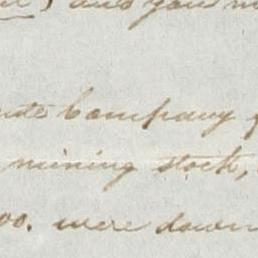 and you
Company
mining stock,
00. were down